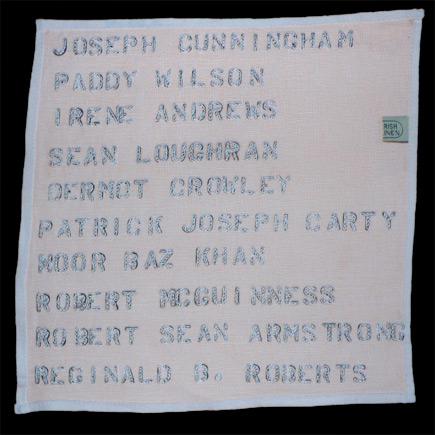 JOSEPH CUNNINGHAM
PADDY WILSON
IRENE ANDREWS
SEAN LOUGHRAN
DERMOT CROWLEY
PATRICK JOSEPH CARTY
NOOR BAZ KHAN
ROBERT MCGUINNESS
ROBERT SEAN ARMSTRONG
REGINALD B. ROBERTS
RISH
INEN